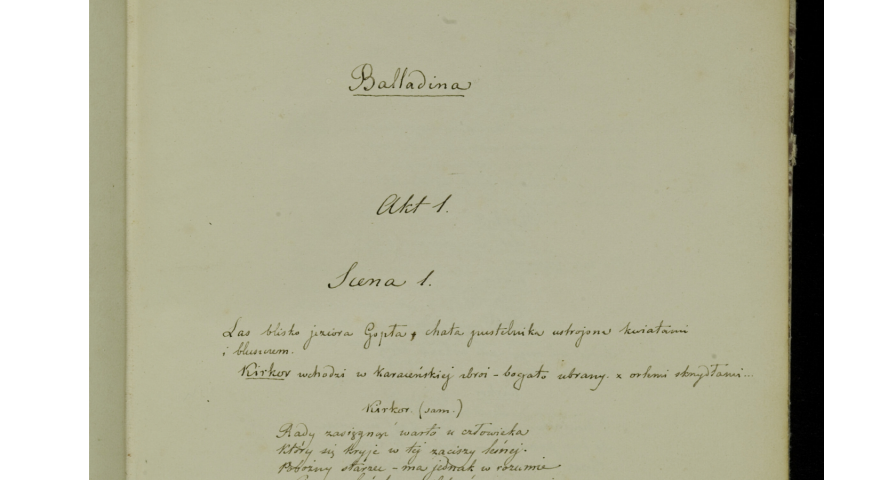 Balladina
Akt 1.
Scena 1.
Las blisko jeziora Gopła, chata pustelnika ustrojona kwiatami
i bluszczem.
Kirkor wchodzi w karaceńskiej zbroi - bogato ubrany. z orlemi skrzydłami...
Kirkor. (sam.)
Rady zasięgnąć warto u człowieka
który się kryje w tej zaciszy leśnej.
Pobożny starzec - ma jednak w rozumie